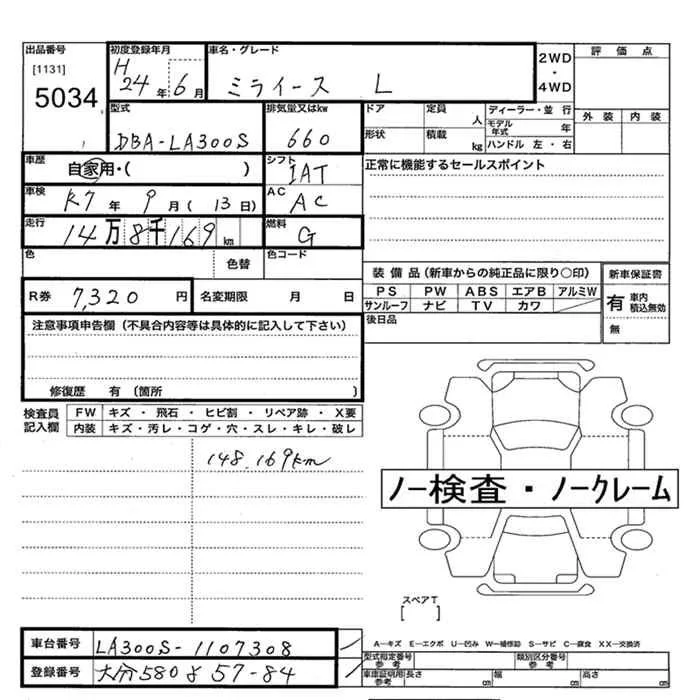 出品番号
[1131]
5034
初度登録年月
H
24年6月
車名・グレード
ミライース L
2WD
・
4WD
評価点
外装 内装
型式
DBA-LA300S
排気量又はkw
660
ドア 定員 人
形状 積載 kg
ディーラー・並行
モデル年式 年
ハンドル 左・右
車歴
自家用・( )
シフト
IAT
正常に機能するセールスポイント
車検
R7年9月(13日)
AC
AC
走行
14万8千169km
燃料
G
色 色替
色コード
R券 7,320円
名変期限 月 日
装備品(新車からの純正品に限り○印)
PS PW ABS エアB アルミW
サンルーフ ナビ TV カワ
後日品
新車保証書
有 車内積込無効
無
注意事項申告欄(不具合内容等は具体的に記入して下さい)
修復歴 有(箇所 )
検査員記入欄
FW キズ・飛石・ヒビ割・リペア跡・X要
内装 キズ・汚レ・コゲ・穴・スレ・キレ・破レ
148.169km
ノー検査・ノークレーム
スペアT
[ ]
車台番号 LA300S-1107308
登録番号 大分580よ57-84
A-キズ E-エクボ U-凹み W-補修跡 S-サビ C-腐食 XX-交換済
型式指定番号 参考
類別区分番号 参考
車庫証明用 参考
長さ cm 幅 cm 高さ cm